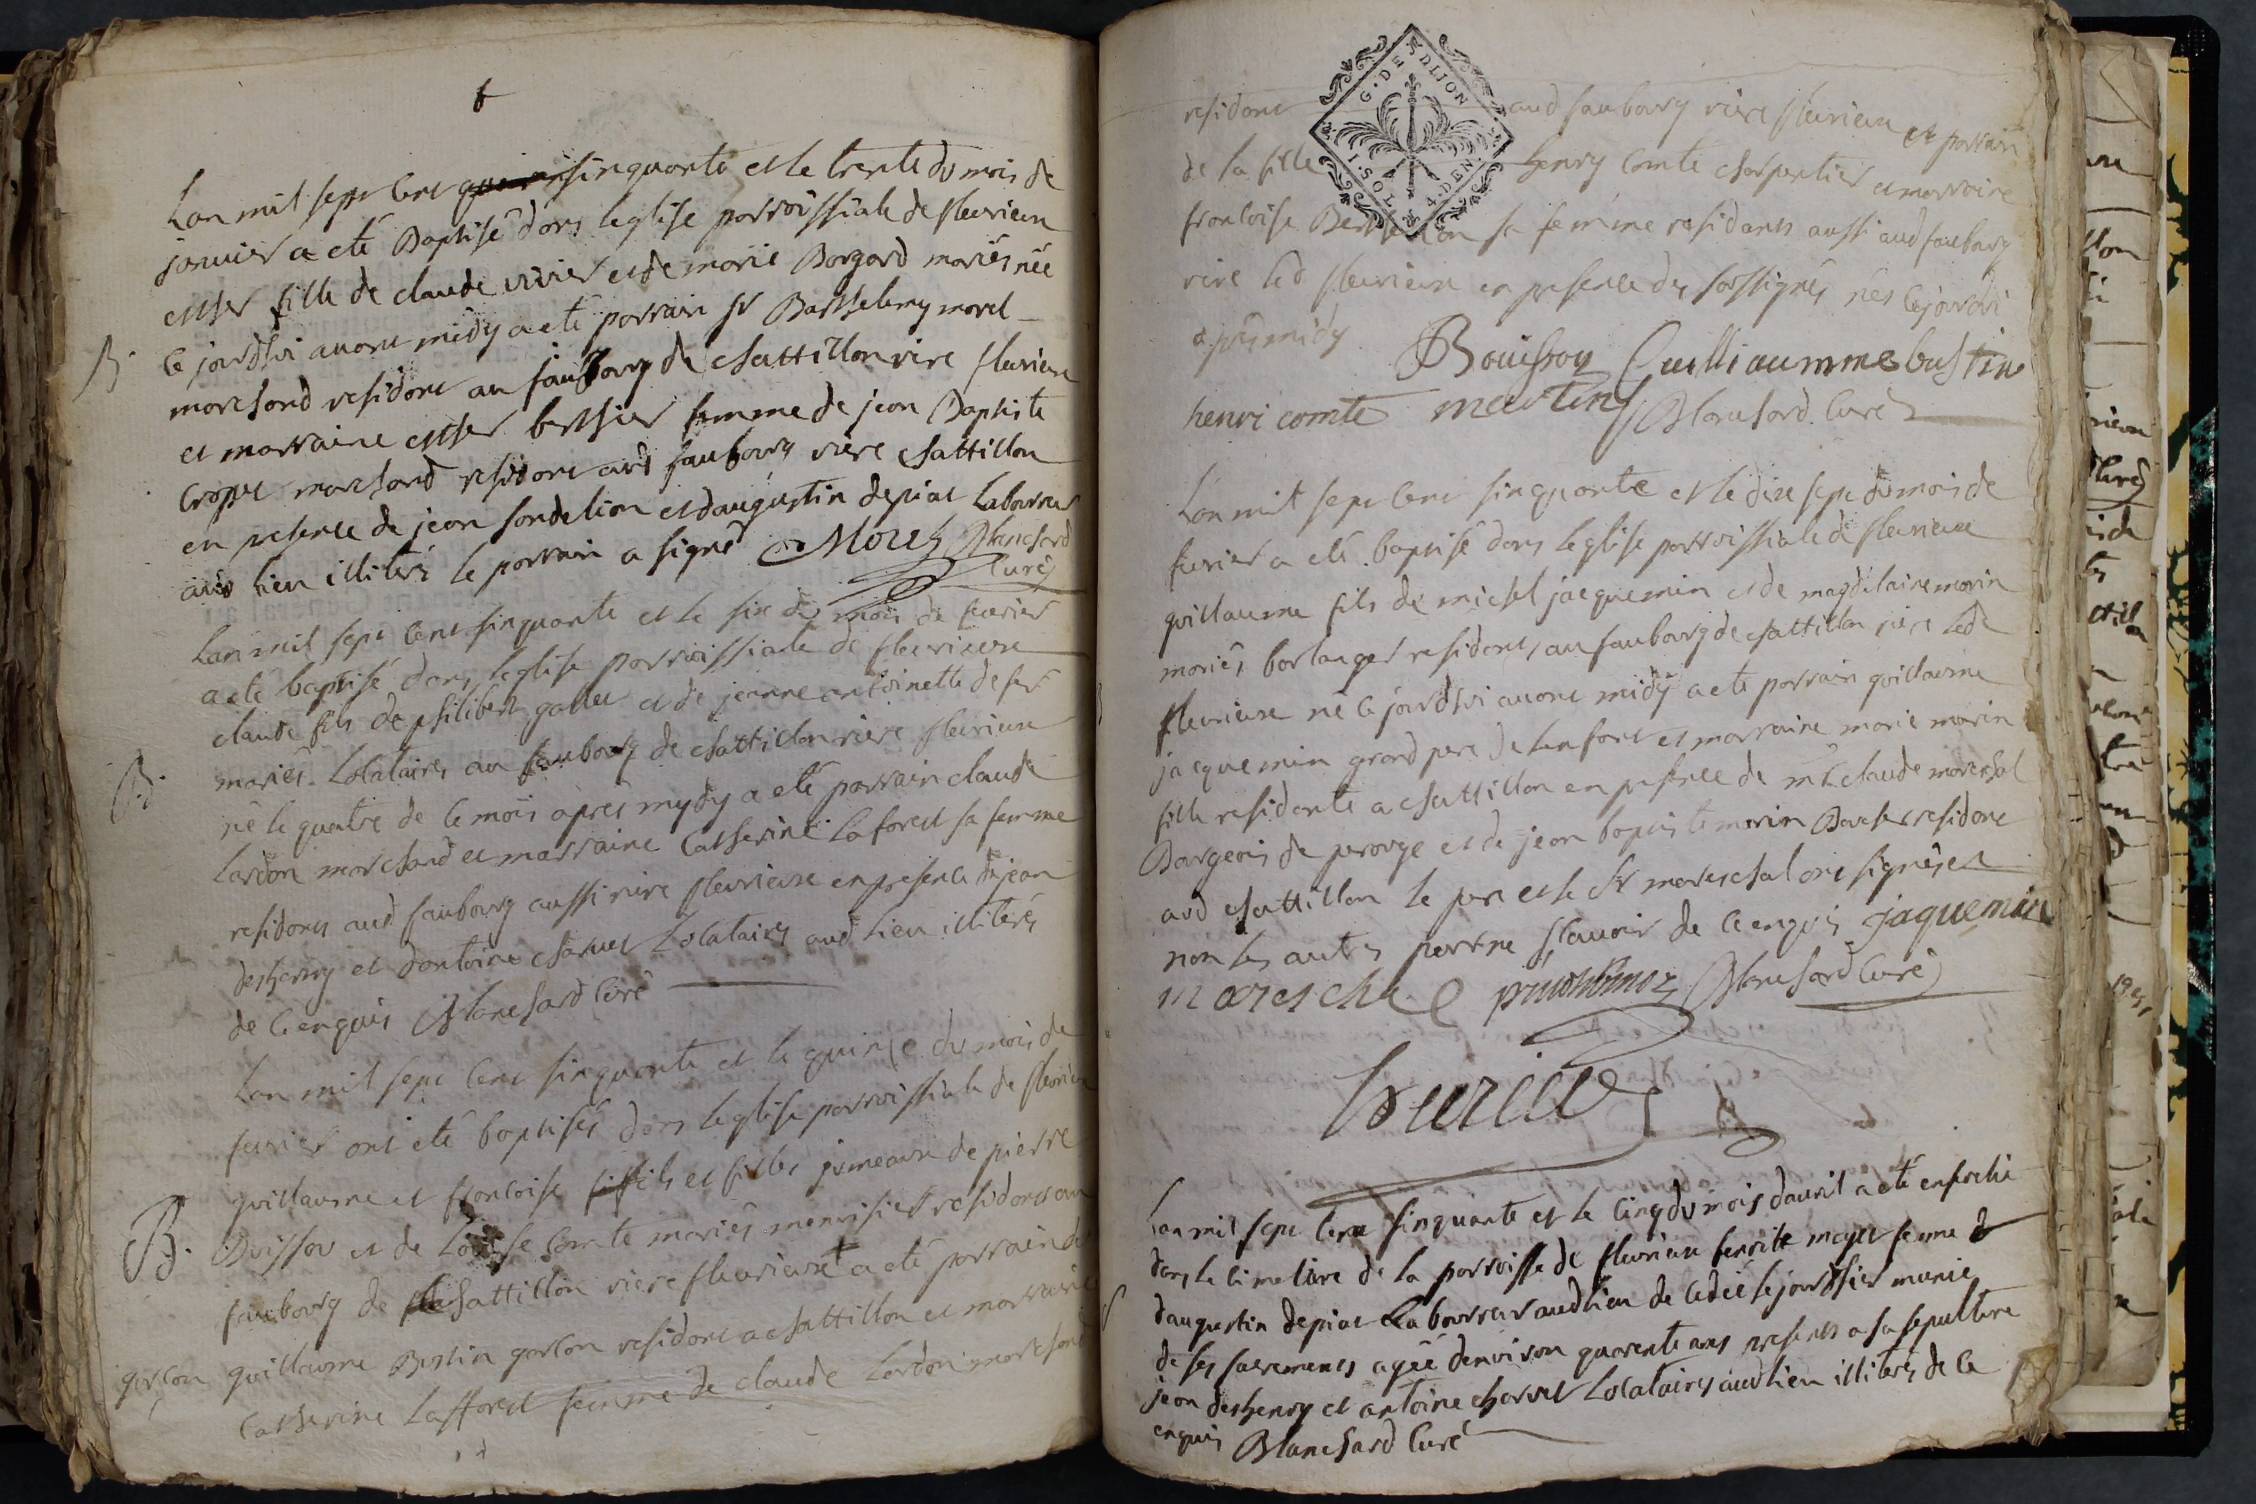 Lan mil sept cent sinquante et le trente du mois de
janvier a eté Baptisé dans leglise parroissiale de fleurieux
esther fille de claude vivier et de marie Borgard mariés née
B. ce jourdhui avant midy a eté parrain sr Barthelemy morel
marchand residant au faubourg de chattillon rire fleurieux
et marraine esther berthier femme de jean Baptiste
cropet marchand residant aud faubourg riere chattillon
en presence de jean sondelion et daugustin depiat Laboureur
aud lieu illiterés le parrain a signé Morel Blanchard
curé
Lan mil sept cent sinquante et le six du mois de fevrier
a eté baptisé dans leglise parroissiale de fleurieux
claude fils de philibert gallet et de jeanne antoinette
B. mariés Locataires au faubourg de chattillon riere fleurieux
né le quatre de ce mois aprés mydy a eté parrain claude
Lardon marchand et marraine Catherine Laforest sa femme
residants aud faubourg aussi rire fleurieux en presence de jean
deshenry et dantoine charvet Locataires aud lieu illiterés
de ce enquis Blanchard Curé
Lan mil sept cent sinquante et le quinze du mois de
fevrier ont eté baptisés dans leglise parroissiale de fleurieux
guillaume et francoise fils et filles jumeaux de pierre
B. Buisson et de Louise Comte mariés menuisier residants au
faubourg de chattillon riere fleurieux a eté parrain du
garcon guillaume Bustin garcon residant a chattillon et marraine
Catherine Lafforest femme de claude Lardon marchand
G. DE DIJON
1. SOL 4. DEN.
residant aud faubourg riere fleurieux et parrain
de la fille henry Comte charpentier et marraine
francoise sa femme residants aussi aud faubourg
rire led fleurieux en presence des soussignés nés cejourdui
aprés midy
Bouisson Cuilliaumme bustin
henri comte martin Blanchard Curé
Lan mil sept cent sinquante et le dix sept du mois de
fevrier a eté baptisé dans leglise parroissiale de fleurieux
guillaume fils de michel jacquemin et de magdelaine morin
mariés boulanger residants au faubourg de chattillon riere led
fleurieux né ce jourdhui avant midy a eté parrain guillaume
jacquemin grand pere de lenfant et marraine marie morin
fille residante a chattillon en presence de mr claude mareschal
Bourgeois de perouge et de jean baptiste morin Boucher residant
aud chattillon le pere et le sr mareschal ont signés et
non les autres pour ne scavoir de ce enquis jaquemin
mareschal prudhomme Blanchard Curé
Lan mil sept cent sinquante et le cinq du mois davril a eté ensevelie
dans le cimetiere de la parroisse de fleurieux mayet femme
daugustin depiat Laboureur aud lieu decedée le jourdhier munie
de ses sacrements agée denviron quarente ans presents a sa sepulture
jean deshenry et antoine charvet Locataires aud lieu illiterés de ce
enquis Blanchard Curé